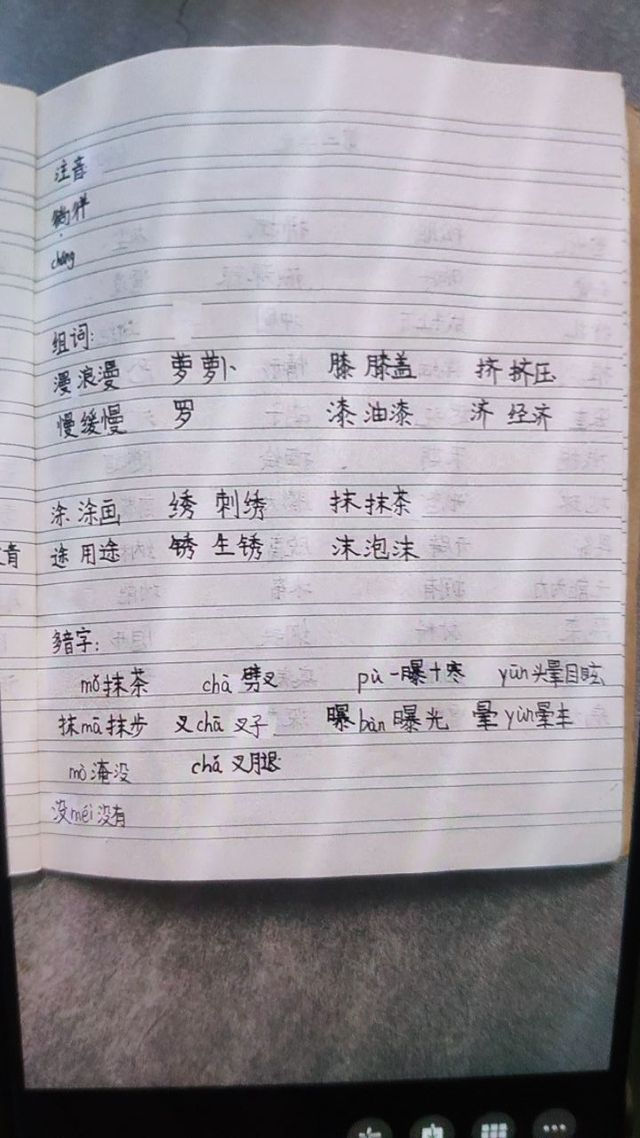 注音
徜徉
cháng
组词:
漫 浪漫 萝 萝卜 膝 膝盖 挤 挤压
慢 缓慢 罗 漆 油漆 济 经济
涂 涂画 绣 刺绣 抹 抹茶
途 用途 锈 生锈 沫 泡沫
多音字:
mǒ 抹茶 chā 劈叉 pù 一曝十寒 yūn 头晕目眩
抹 mā 抹步 叉 chā 叉子 曝 bàn 曝光 晕 yùn 晕车
mò 淹没 chǎ 叉腿
没 méi 没有